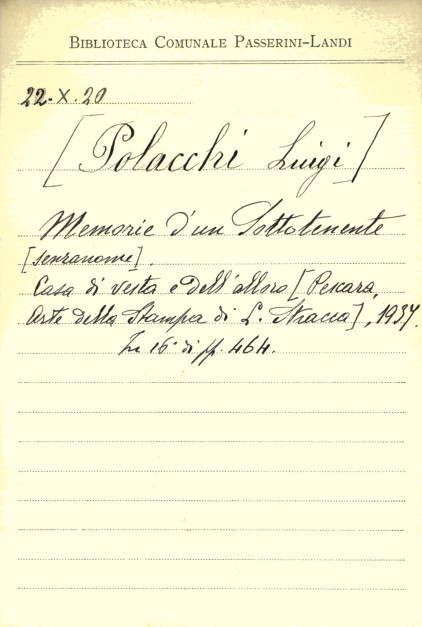 BIBLIOTECA COMUNALE PASSERINI-LANDI
22-X-20
[Polacchi Luigi]
Memorie d'un Sottotenente
[senzanome].
Casa di vesta e dell'alloro [Pescara,
Arte della Stampa di L. Stracca], 1937.
In 16° di pp. 464.